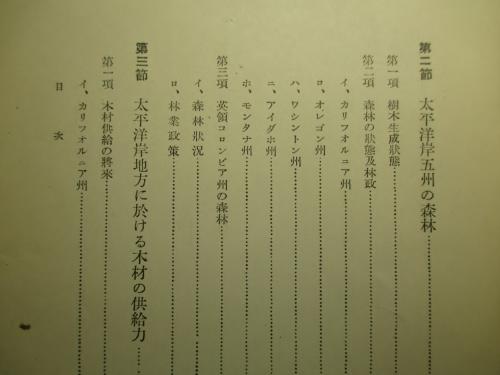 第二節 太平洋岸五州の森林
第一項 樹木生成狀態
第二項 森林の狀態及林政
イ、カリフオルニア州
ロ、オレゴン州
ハ、ワシントン州
ニ、アイダホ州
ホ、モンタナ州
第三項 英領コロンビア州の森林
イ、森林狀況
ロ、林業政策
第三節 太平洋岸地方に於ける木材の供給力
第一項 木材供給の將來
イ、カリフオルニア州
目次